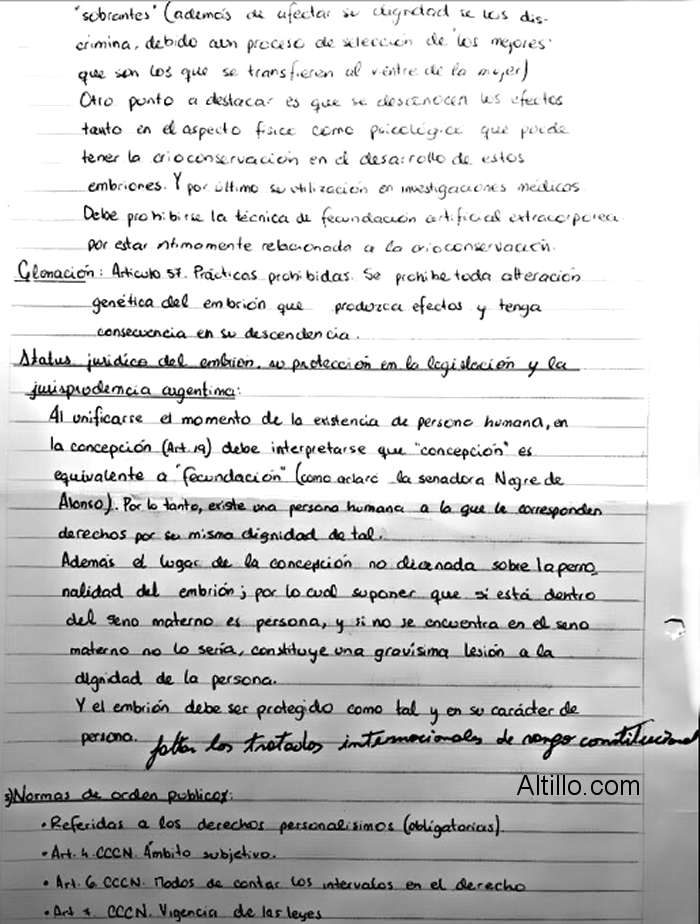 "sobrantes" (además de afectar su dignidad se los dis-
crimina, debido a un proceso de selección de "los mejores"
que son los que se transfieren al vientre de la mujer)
Otro punto a destacar es que se desconocen los efectos
tanto en el aspecto físico como psicológico que puede
tener la crioconservación en el desarrollo de estos
embriones. Y por último su utilización en investigaciones médicas
Debe prohibirse la técnica de fecundación artificial extracorporea
por estar íntimamente relacionada a la crioconservación.
Clonación: Articulo 57. Prácticas prohibidas. Se prohibe toda alteración
genética del embrión que produzca efectos y tenga
consecuencia en su descendencia.
Status jurídico del embrión, su protección en la legislación y la
jurisprudencia argentina:
Al unificarse el momento de la existencia de persona humana, en
la concepción (Art. 19) debe interpretarse que "concepción" es
equivalente a "fecundación" (como aclaró la senadora Negre de
Alonso). Por lo tanto, existe una persona humana a la que le corresponden
derechos por su misma dignidad de tal.
Además el lugar de la concepción no dice nada sobre la perso_
nalidad del embrión; por lo cual suponer que si está dentro
del seno materno es persona, y si no se encuentra en el seno
materno no lo sería, constituye una gravísima lesión a la
dignidad de la persona.
Y el embrión debe ser protegido como tal y en su carácter de
persona. faltan los tratados internacionales de rango constitucional
Altillo.com
Normas de orden publicos:
• Referidas a los derechos personalísimos (obligatorias).
• Art. 4. CCCN. Ámbito subjetivo.
• Art. 6. CCCN. Modos de contar los intervalos en el derecho
• Art 7. CCCN. Vigencia de las leyes